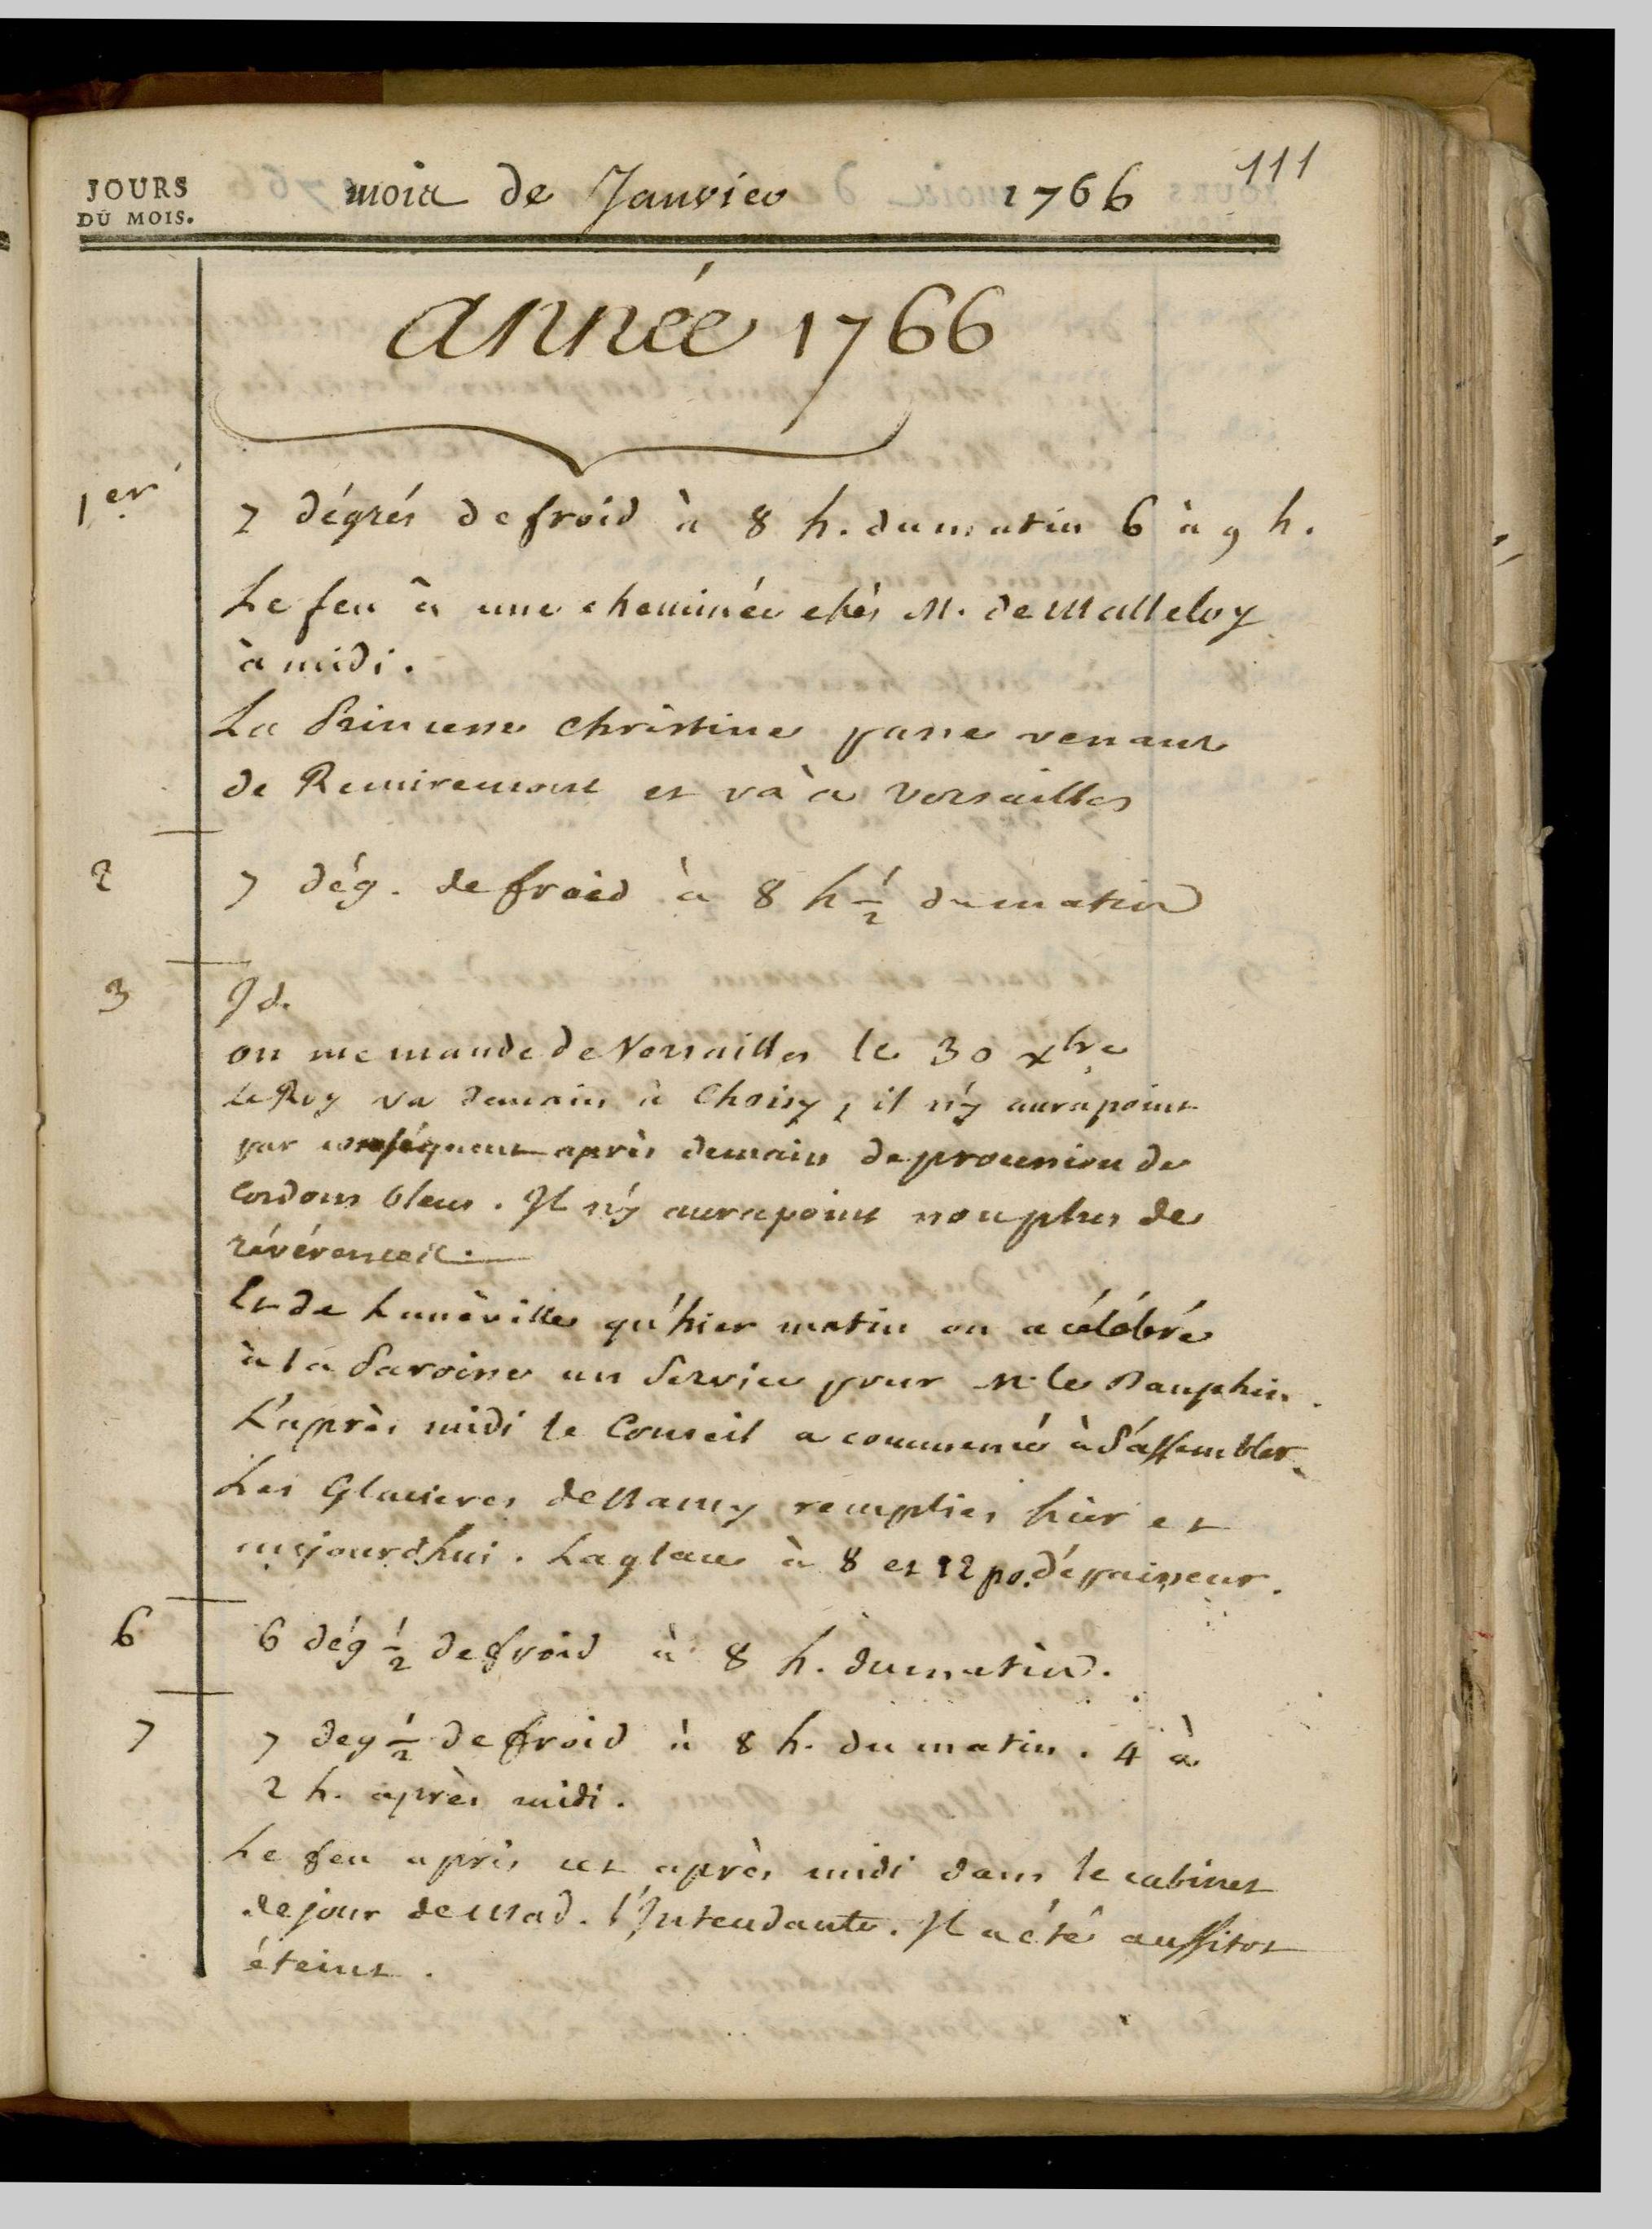 111
JOURS
DU MOIS.
mois de Janvier 1766
année 1766
1er 7 dégrés de froid à 8 h. du matin 6 à 9 h.
Le feu à une cheminée chés M. de Malleloy
à midi.
La Princesse Christine passe venant
de Remiremont et va à Versailles
2 7 dég. de froid à 8 h 1/2 du matin
3 Id.
on me mande de Versailles le 30 xbre
le Roy va demain à Choisy, il n'y aura point
par conséquent après demain de procession de
Cordons bleus. Il n'y aura point non plus de
révérences.
Et de Lunéville qu'hier matin on a célébré
à la Paroisse un Service pour M. le Dauphin.
L'après midi le Conseil a commencé à s'assembler.
Les Glacieres de Nancy remplies hier et
aujourdhui. La glace à 8 et 12 po. d'épaisseur.
6 6 dég 1/2 de froid à 8 h. du matin.
7 7 deg 1/2 de froid à 8 h. du matin. 4 à
2 h. après midi.
Le feu a pris cet après midi dans le cabinet
de jour de Mad. l'Intendante. Il a été aussitot
éteint.